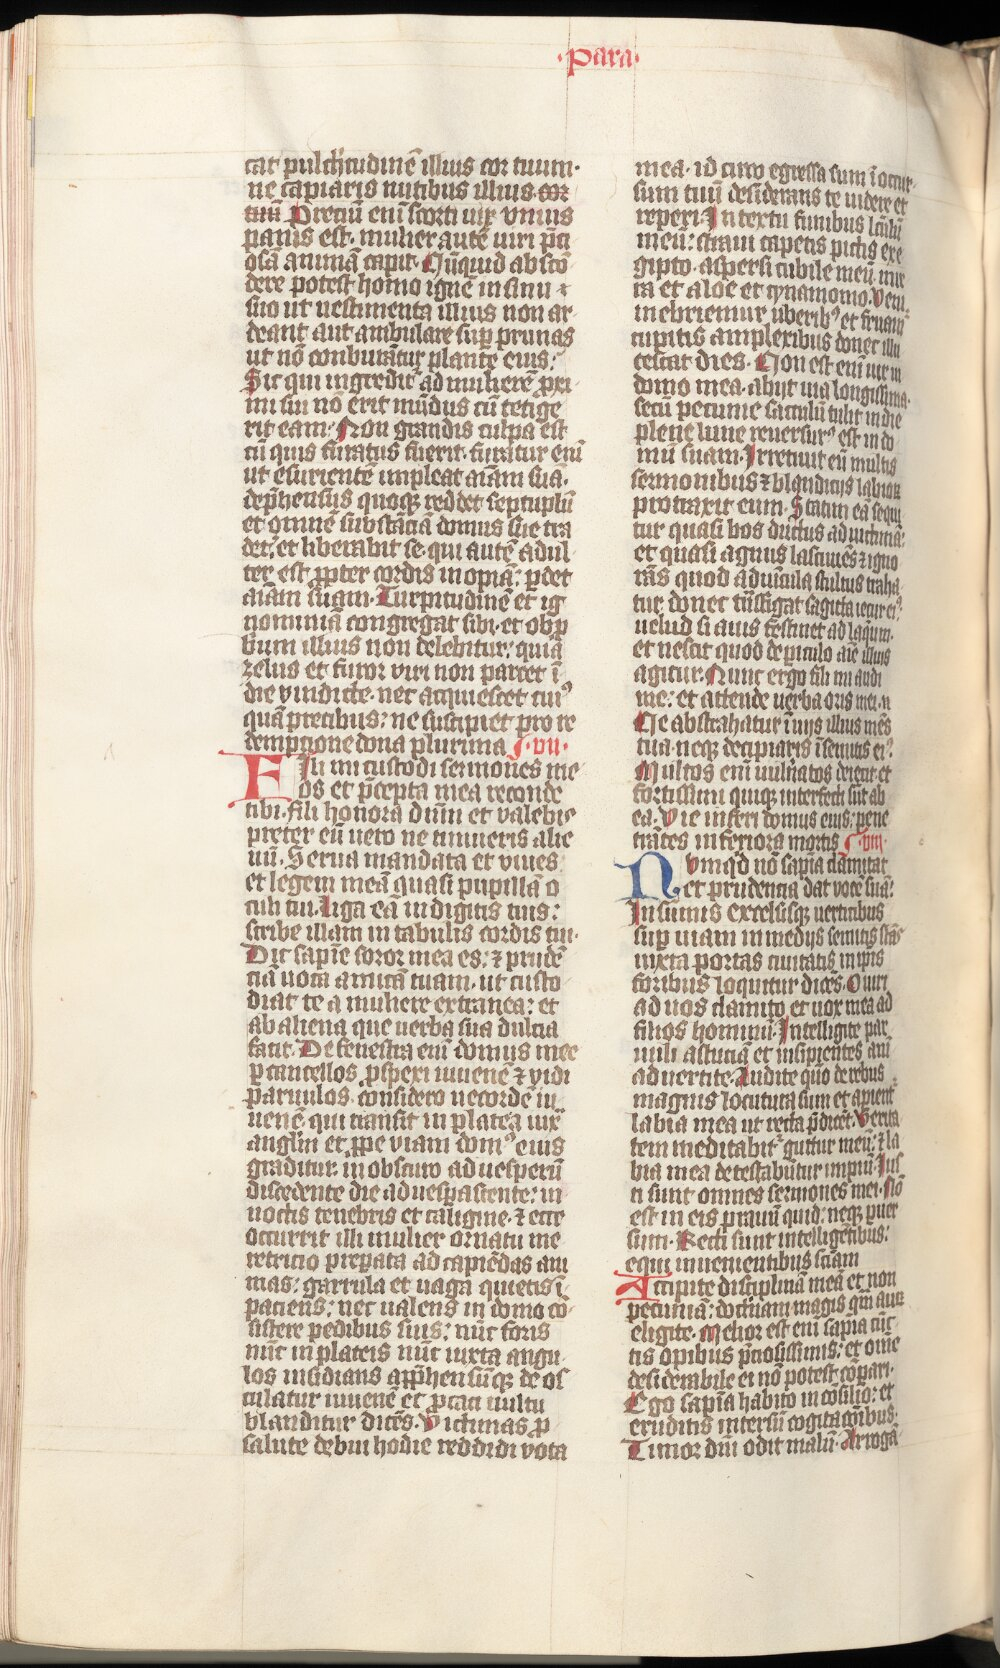 ·para·
cat pulch᷑itudinē illius cor tuum·
ne capiaris nutibus illius cor
tuū Preciū eni᷑ scorti uix vnius
panis est· mulier autē uiri p̄ci
osā animā capit· Nūquid absco᷑
dere potest homo ignē in sinu ⁊
suo ut uestimenta illius non ar
deant aut ambulare sup̱ prunas
ut nō conburātur plante eius:
Sic qui ingredit᷑ ad mulierē ꝓxi
mi sui nō erit mūdus cū tetige
rit eam· Non grandis culpa est
cū quis furatus fuerit· furatur eni᷑
ut esurientē impleat aīam suā·
dep̄hensus quoqꝫ reddet septuplū
et omnē substāciā domus sue tra
det, et liberabit se· qui autē adul
ter est ꝓpter cordis inopiā: ꝑdet
aīam suam· Turpitudinē et ig
nominiā congregat sibi· et obꝓ
brium illius non delebitur: quia
zelus et furor viri non parcet ī
die vindicte· nec acquiescet cui᷒
quā precibus: ne suscipiet pro re
demptione dona plurima ·vii·
Fili mi custodi sermones me
os et p̄cepta mea reconde
tibi· fili honora dūm et valebis
preter eū uero ne timueris alie
nū· Serua mandata et viues
et legem meā quasi pupillā o
culi tui· Liga eā in digitis tuis:
scribe illam in tabulis cordis tui·
Dic sapīe soror mea es: ⁊ prudē
ciā uoca amicā tuam· ut custo
diat te a muliere extranea: et
ab aliena que uerba sua dulcia
facit· De fenestra eni᷑ domus mee
ꝑ cancellos ꝓspexi iuuenē ⁊ vidi
paruulos· considero uecordē iu
uenē qui transit in platea iux᷑
anglm et ꝓpe viam dom᷒ eius
graditur· in obscuro ad uesperū
discedente die aduesꝑascente: in
noctis tenebris et caligine· ⁊ ecce
occurrit illi mulier ornatu me
retricio preparata ad capiēdas ani
mas: garrula et uaga quietis ī
paciens: nec ualens in domo cō
sistere pedibus suis: nūc foris
nūc in plateis nūc iuxta angu
los insidians app̄hensūqꝫ de os
culatur iuuenē et ꝓcaci uultu
blanditur dicēs· Victimas ꝓ
salute debui hodie reddidi vota
mea· id circo egressa sum ī occur
sum tuū desiderans te uidere et
reperi· Intextu funibus lc̄ulū
meū: straui tapetis pictis exe
gipto· aspersi cubile meū mir
ra et aloe et cynamomo· Veni
inebriemur uberib᷒ et fruam᷒
cupitis amplexibus donec illu
cescat dies· Non est eni᷑ uir in
domo mea· abijt uia longissima·
secū pecunie sacculū tulit in die
plene lune reuersur᷒ est in do
mū suam· Irretiuit eū multis
sermonibus ⁊ blandicijs labiorꝝ
protraxit eum· Statim eā sequi
tur quasi bos ductus ad uictimā:
et quasi agnus lasciuiēs ⁊ igno
rās quod ad uīcula stultus traha
tur donec tn̄sfigat sagitta iecur ei᷒:
uelud si auis festinet ad laqūm·
et nescit quod de ꝑiculo aīe illius
agitur· Nunc ergo fili mi audi
me: et attende uerba oris mei· n
Ne abstrahatur ī uijs illius mēs
tua· neqꝫ decipiaris ī semitis ei᷒·
Multos eni᷑ uuln̄atos deiecit et
fortissimi quiqꝫ interfecti sūt ab
ea· Vie inferi domus eius: pene
trātes inferiora mortis ·viii·
Numq̇d nō sapīa clāmitat
et prudencia dat vocē suā:
In sūmis excelsisqꝫ uerticibus
sup̱ uiam in medijs semitis stās
iuxta portas ciuitatis in ip̄is
foribus loquitur dicēs· O uiri
ad uos clamito et uox mea ad
filios hominū· Intelligite par
uuli astuciā et insipientes ani
aduertite· Audite quō de rebus
magnis locutura sum et apient᷑
labia mea ut recta p̄dicēt· Verita
tem meditabit᷑ guttur meū: ⁊ la
bia mea detestabūtur impiū· Jus
ti sunt omnes sermones mei· Nō
est in eis prauū quid: neqꝫ ꝑuer
sum· Recti sunt intelligētibus:
equi inuenientibus sciām
Accipite disciplinā meā et non
pecuniā: doctrinam magis q̄m auꝝ
eligite· Melior est eni᷑ sapīa cūc
tis opibus p̄ciosissimis: et omē
desiderabile ei nō potest cōpari·
Ego sapīa habito in cōsilio: et
eruditis intersū cogitacōibus·
Timor dn̄i odit malū· Arrogā